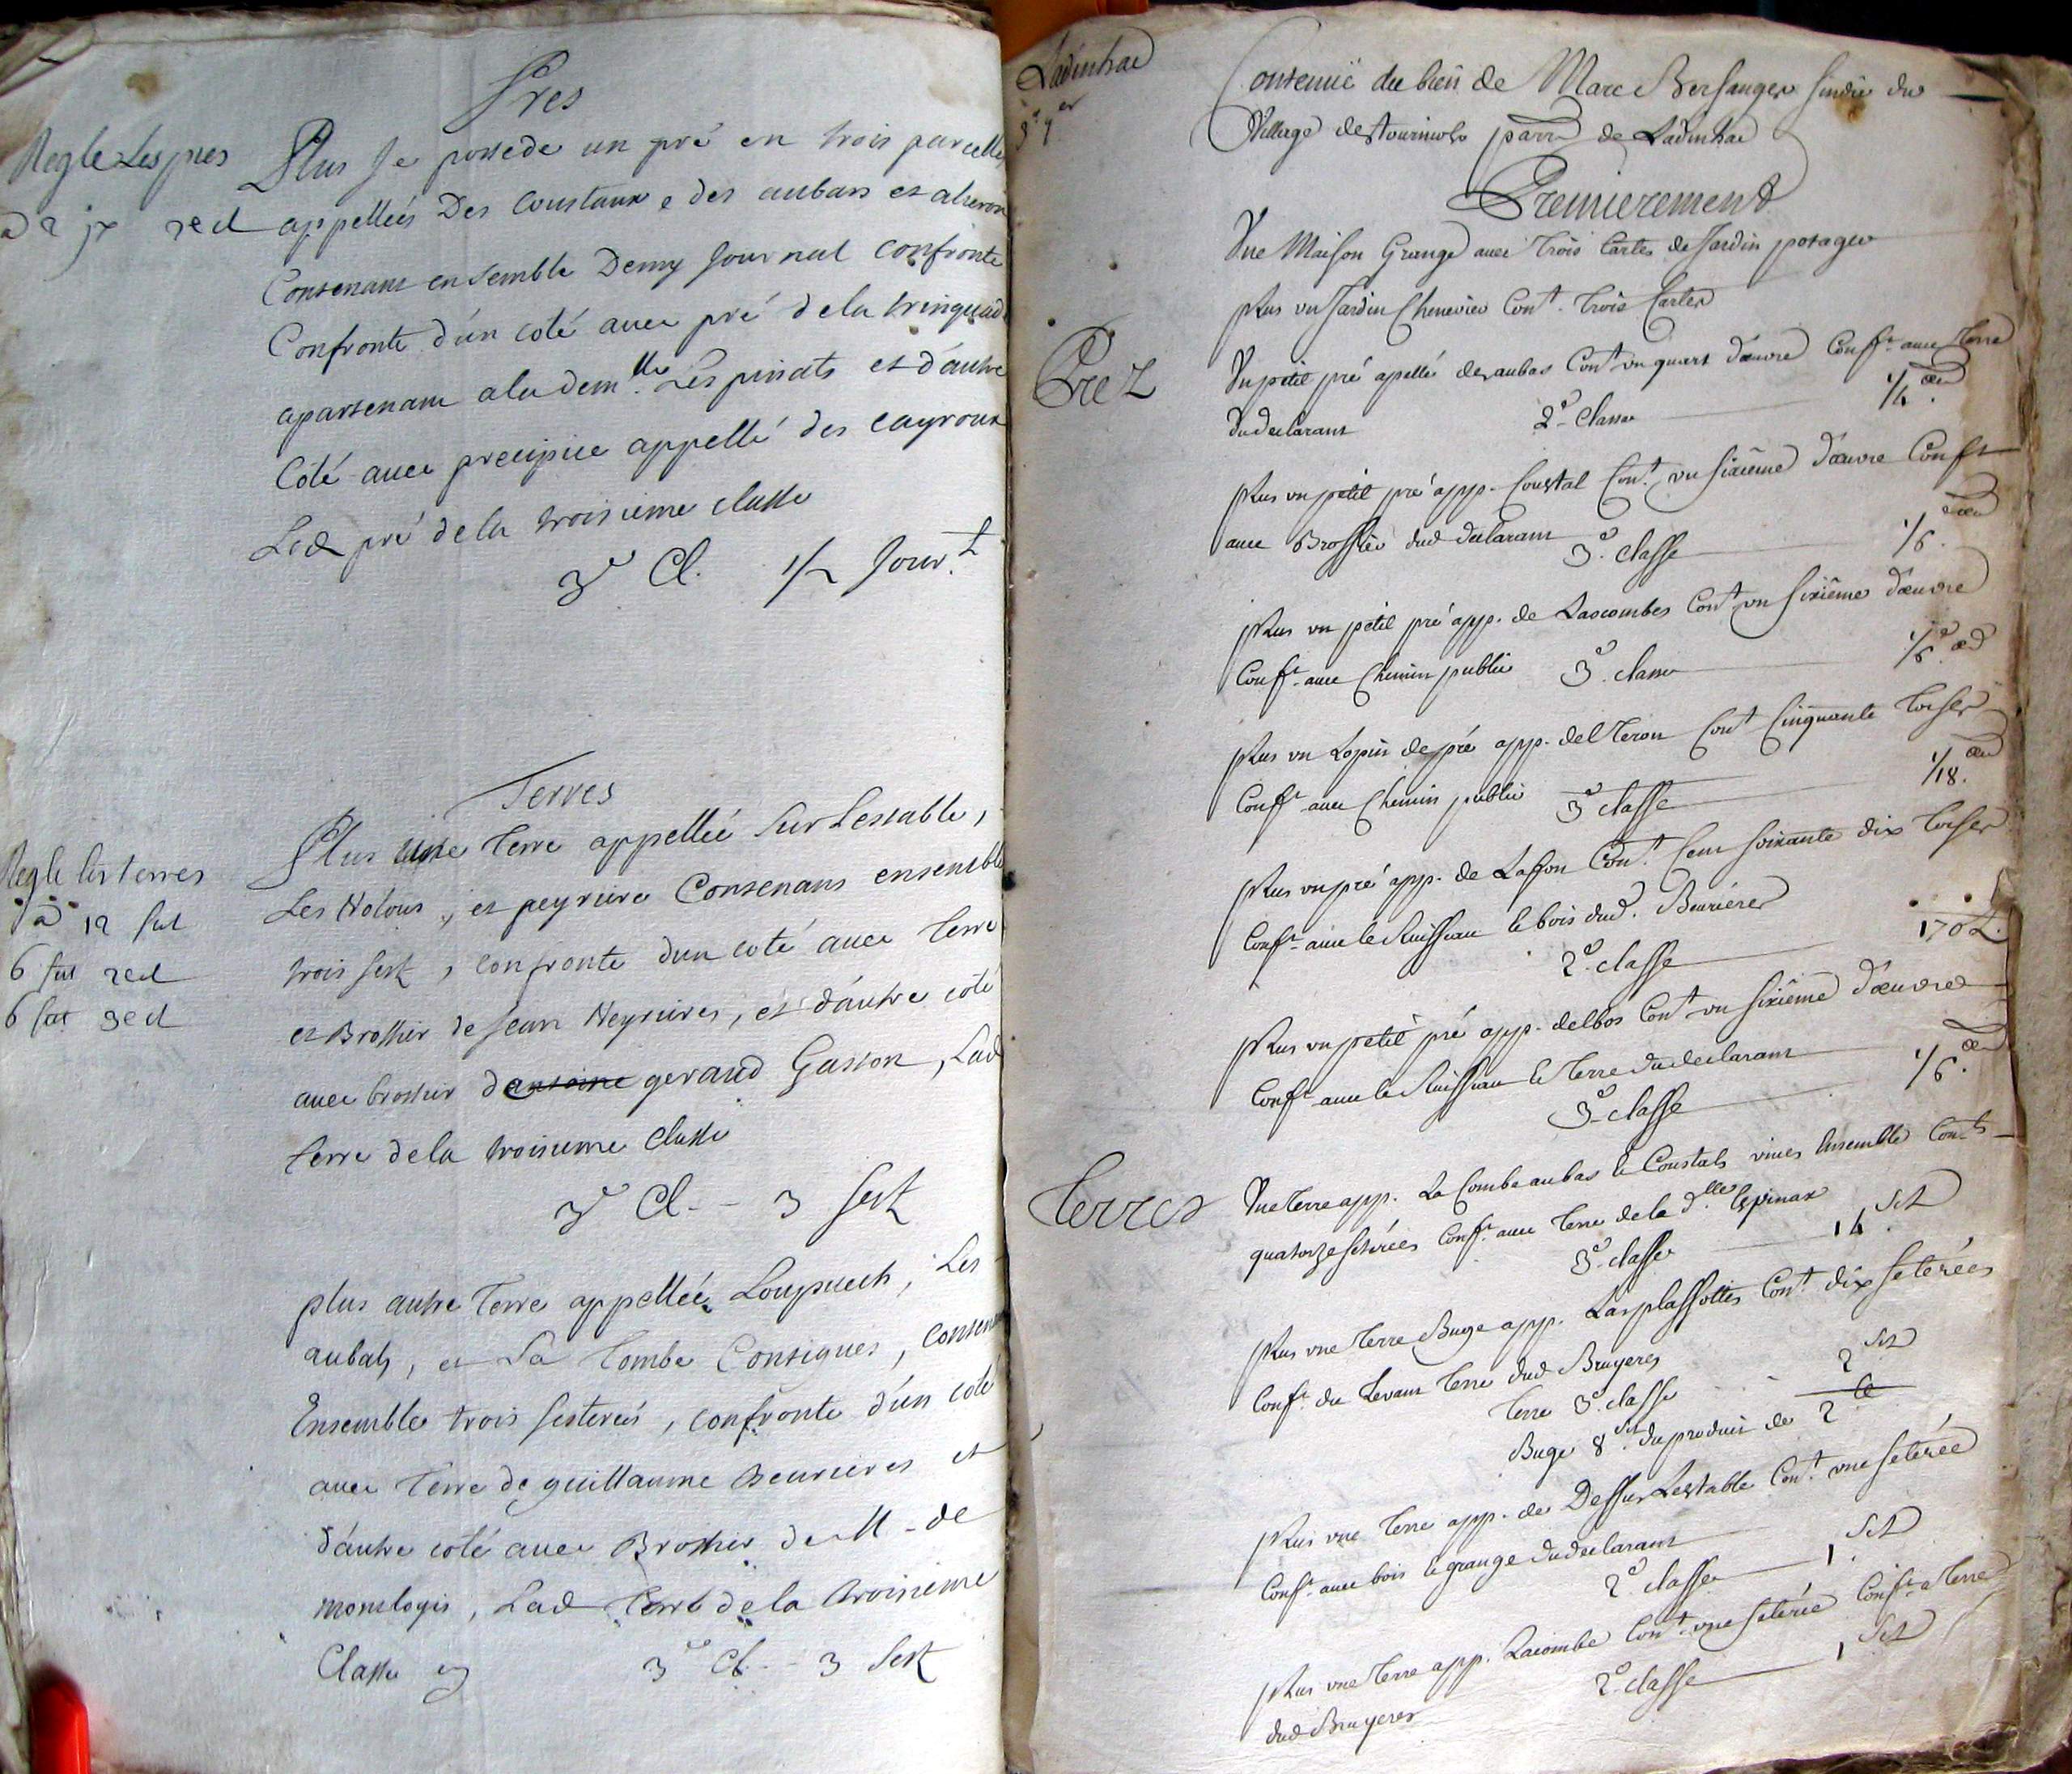 Pres
Regle Les pres
Plus Je possede un pré en trois parcelles
appellées Des Coustaux e des aubars et alseron
Contenant ensemble Demy Journal confronte
Confronte d'un coté avec pré de la tringuade
apartenant a la dem.lle Lespinats et d'autre
Coté avec precipice appellé des cayroux
Led pré de la troisieme classe
3e Cl. 1/2 Jour.l
Terres
Regle les terres
a 12 sat
6 sat red
6 sat sed
Plus une Terre appellée Sur Lestable,
Les Nolous, et peyriere Contenans ensemble
trois sest, confronte dun coté avec Terre
et Brossier de Jean Neyrieres, et d'autre coté
avec brossier d'antoine geraud Gasson, Lad
terre de la troisieme Classe
3e Cl. - 3 sest
plus autre Terre appellée Loupuech, Les
aubats, et La Combe Contigues, Contenant
Ensemble trois sesterées, confronte d'un coté
avec Terre de guillaume Beurieres et
d'autre coté avec Brossier de M. de
monlogis, Lad Terre de la troisieme
Classe
3e Cl. - 3 Sest
Ladinhac
Contenüe du bien de Marc Bersanger sindic du
Village de Tourniols parr de Ladinhac
Premierement
Une Maison Grange avec trois Cartes de Jardin potager
Plus un Jardin Chenevier Cont. trois Cartes
Prez
Un petit pré apellé des aubas Cont un quart d'œuvre Conft avec Terre
du declarant 2e Classe 1/4 œu
Plus un petit pré app. Coustal Cont. un sixième d'œuvre Conft
avec Brossier dud declarant 3e classe 1/6. dœu
Plus un petit pré app. de Lascombes Cont un sixième d'œuvre
Conft avec Chemin public 3e classe 1/6 œd
Plus un Lopin de pré app. del Teron Cont Cinquante toises
Conft avec Chemin public 3e classe 1/18. œu
Plus un pré app. de Lafon Cont. Cent soixante dix toises
Conft avec le Ruisseau le bois dud. Beurières
2e classe 170 t.
Plus un petit pré app. delbos Cont un sixième d'œuvre
Conft avec le Ruisseau le Terre du declarant
3e classe 1/6. œu
Terres
Une terre app. La Combe aubas le Coustals vines Ensemble Conts
quatorze séterées Conft. avec Terre de la dlle Espinax
3e classe 14 Set
Plus une Terre Buge app. Las plassottes Cont. dix seterées
Conft du Levant Terre dud Bruyeres
Terre 3e classe 2 Set
Buge 8 Set. du produit de 2 le
Plus une Terre app. de Dessus Lestable Cont. une seterée
Conft avec bois le grange du declarant
2e classe 1. Set
Plus une Terre app. Lacombe Cont. une seterée Conft a Terre
dud Bruyeres 2e classe 1 Set